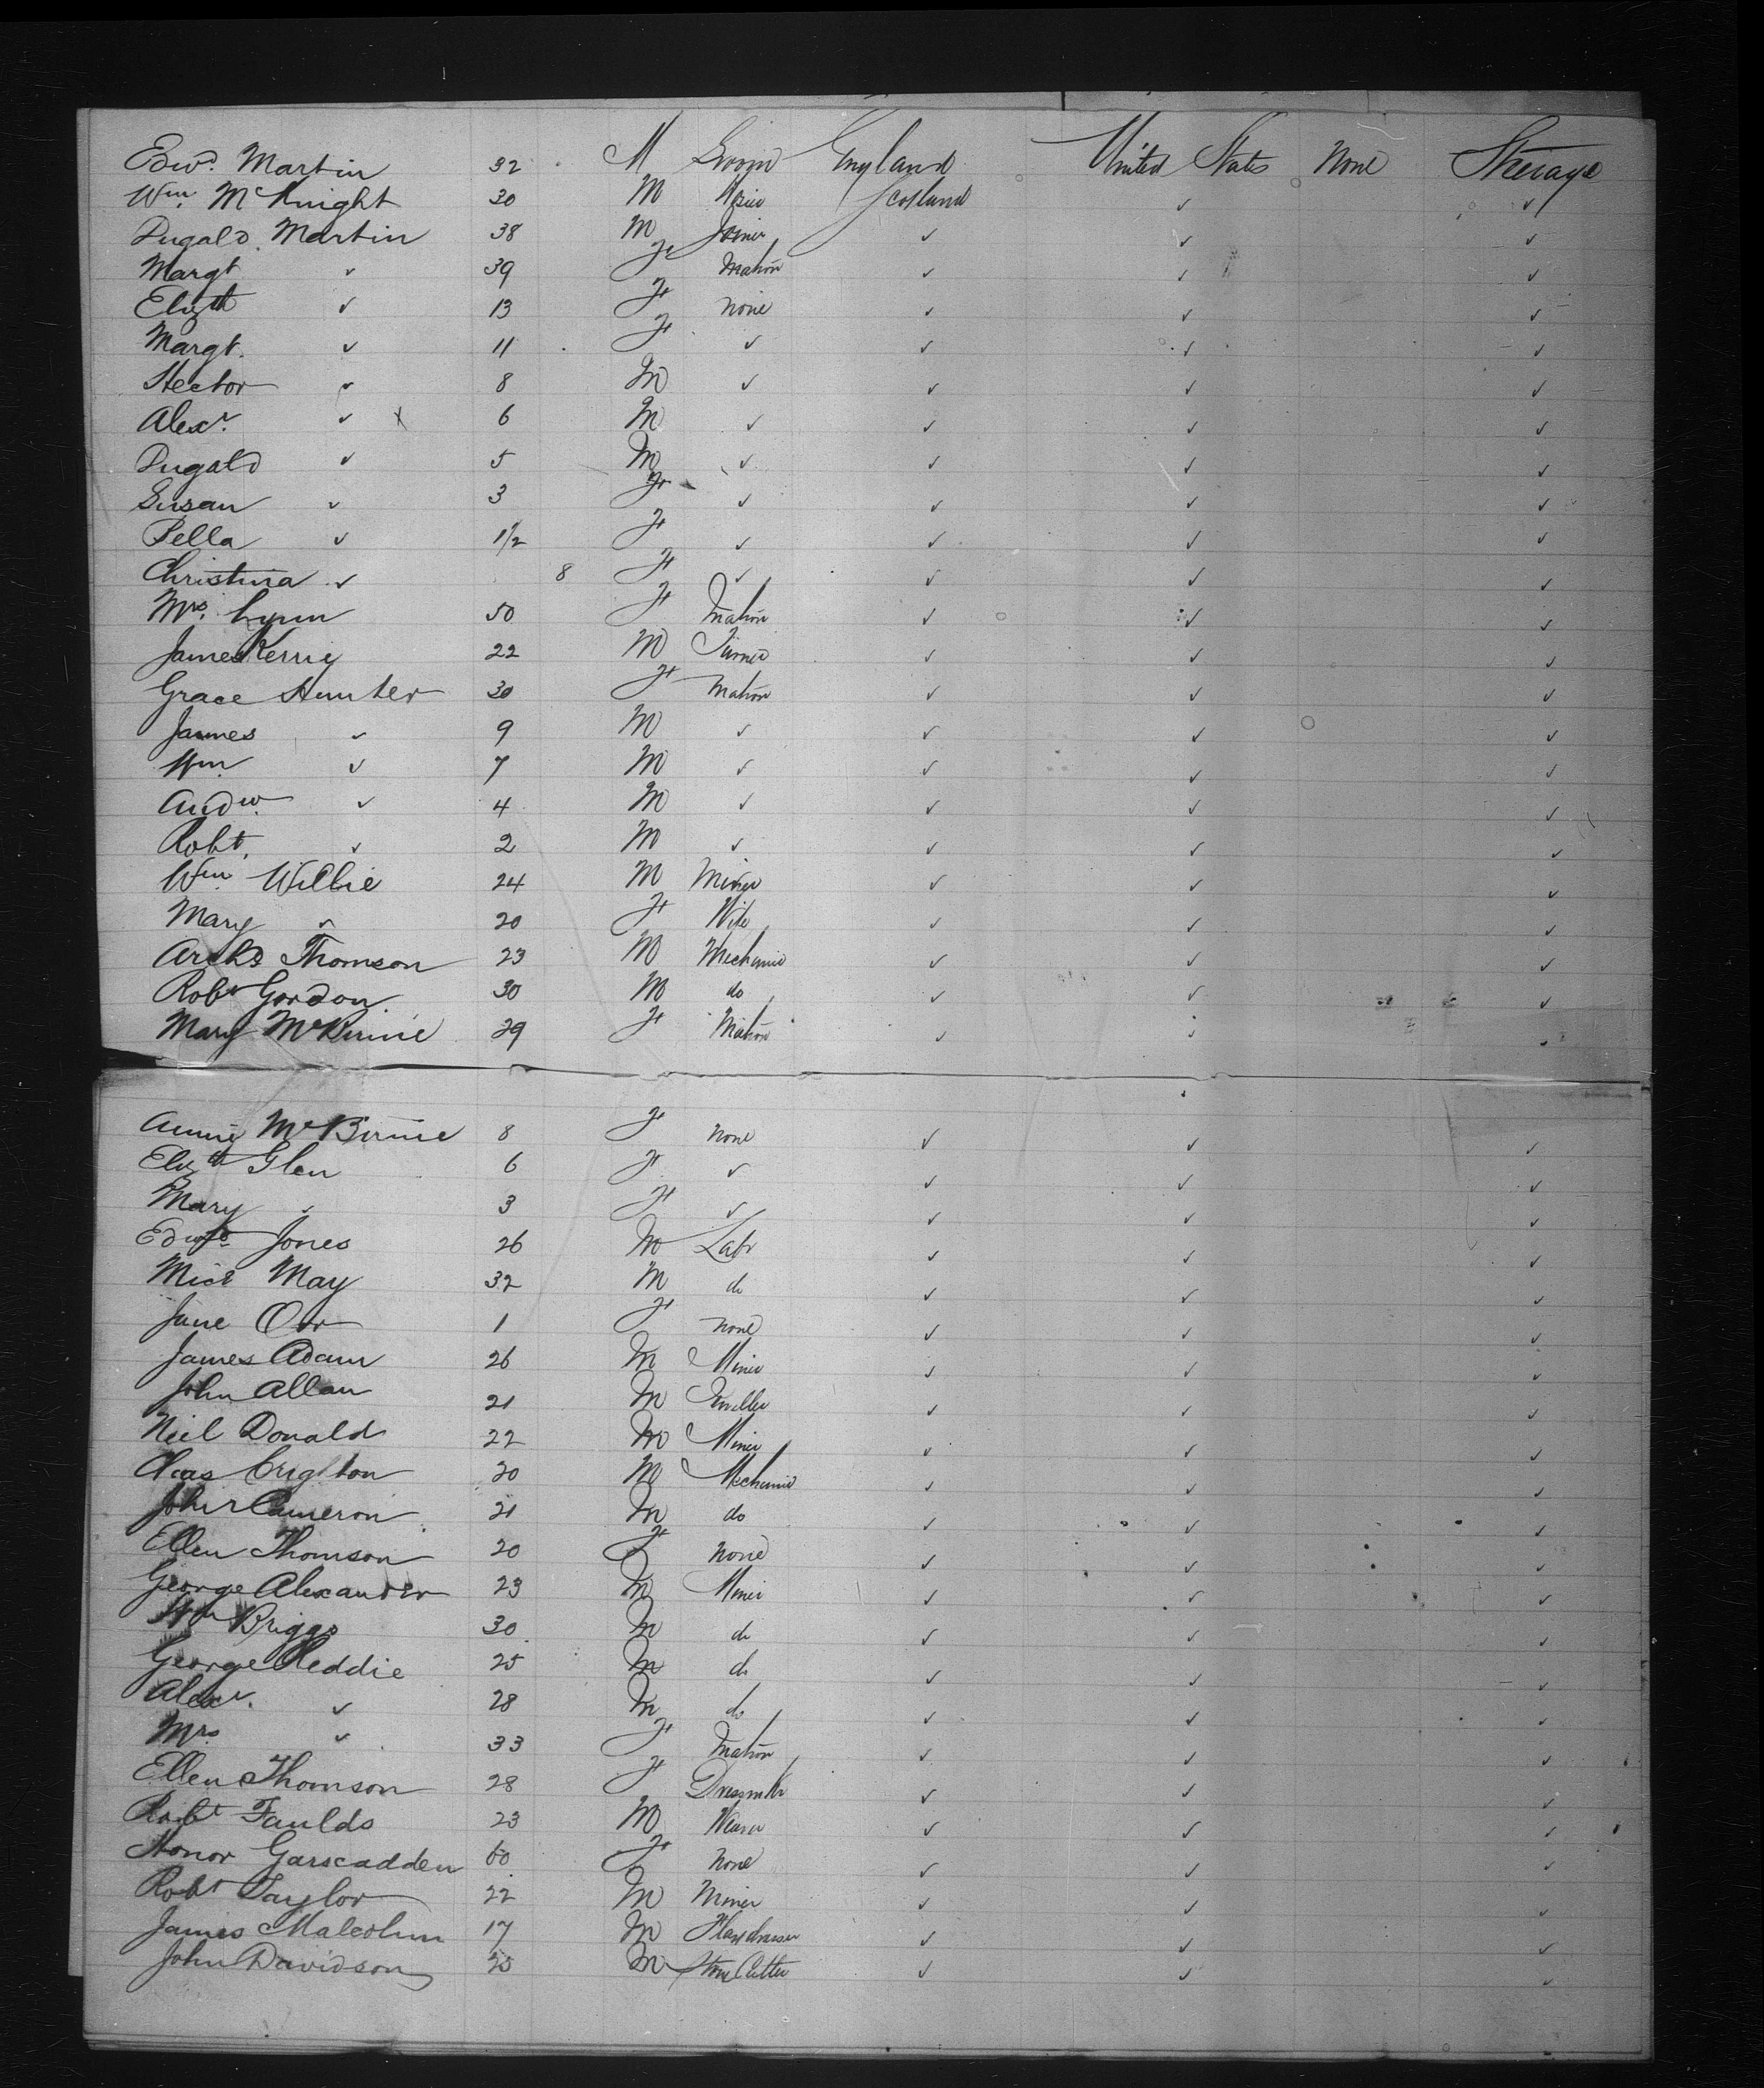 Edwd. Martin 32 M Groom England United States None Steerage
Wm. McKnight 30 M Scotland ✓ ✓
Dugald Martin 38 M Joiner ✓ ✓ ✓
Margt ✓ 39 F Matron ✓ ✓ ✓
Elizth ✓ 13 F None ✓ ✓ ✓
Margt. ✓ 11 F ✓ ✓ ✓ ✓
Hector ✓ 8 M ✓ ✓ ✓ ✓
Alexr. ✓ x 6 M ✓ ✓ ✓ ✓
Dugald ✓ 5 M ✓ ✓ ✓ ✓
Susan ✓ 3 F ✓ ✓ ✓ ✓
Bella ✓ 1½ F ✓ ✓ ✓ ✓
Christina ✓ 8 F ✓ ✓ ✓ ✓
Mrs. Lynn 50 F Matron ✓ ✓ ✓
James Kerrie 22 M Turner ✓ ✓ ✓
Grace Hunter 30 F Matron ✓ ✓ ✓
James ✓ 9 M ✓ ✓ ✓ ✓
Wm ✓ 7 M ✓ ✓ ✓ ✓
Andw. ✓ 4 M ✓ ✓ ✓ ✓
Robt. ✓ 2 M ✓ ✓ ✓ ✓
Wm. Willie 24 M Miner ✓ ✓ ✓
Mary ✓ 20 F Wife ✓ ✓ ✓
Archd Thomson 23 M Mechanic ✓ ✓ ✓
Robt Gordon 30 M do ✓ ✓ ✓
Mary McBirnie 29 F Matron ✓ ✓ ✓
Annie McBirnie 8 F None ✓ ✓ ✓
Elizth Glen 6 F ✓ ✓ ✓ ✓
Mary ✓ 3 F ✓ ✓ ✓ ✓
Edwd Jones 26 M Labr ✓ ✓ ✓
Micl May 32 M do ✓ ✓ ✓
Jane Orr 1 F None ✓ ✓ ✓
James Adam 26 M Miner ✓ ✓ ✓
John Allan 21 M ✓ ✓ ✓
Neil Donald 22 M Miner ✓ ✓ ✓
Chas Crighton 20 M Mechanic ✓ ✓ ✓
John Cameron 21 M do ✓ ✓ ✓
Ellen Thomson 20 F None ✓ ✓ ✓
George Alexander 23 M Miner ✓ ✓ ✓
Wm Briggs 30 M do ✓ ✓ ✓
George Reddie 25 M do ✓ ✓ ✓
Alexr. ✓ 28 M do ✓ ✓ ✓
Mrs. ✓ 33 F Matron ✓ ✓ ✓
Ellen Thomson 28 F Dressmkr ✓ ✓ ✓
Robt Faulds 23 M Weaver ✓ ✓ ✓
Honor Garscadden 60 F None ✓ ✓ ✓
Robt Taylor 22 M Miner ✓ ✓ ✓
James Malcolm 17 M Flaxdresser ✓ ✓ ✓
John Davidson 25 M Stone Cutter ✓ ✓ ✓